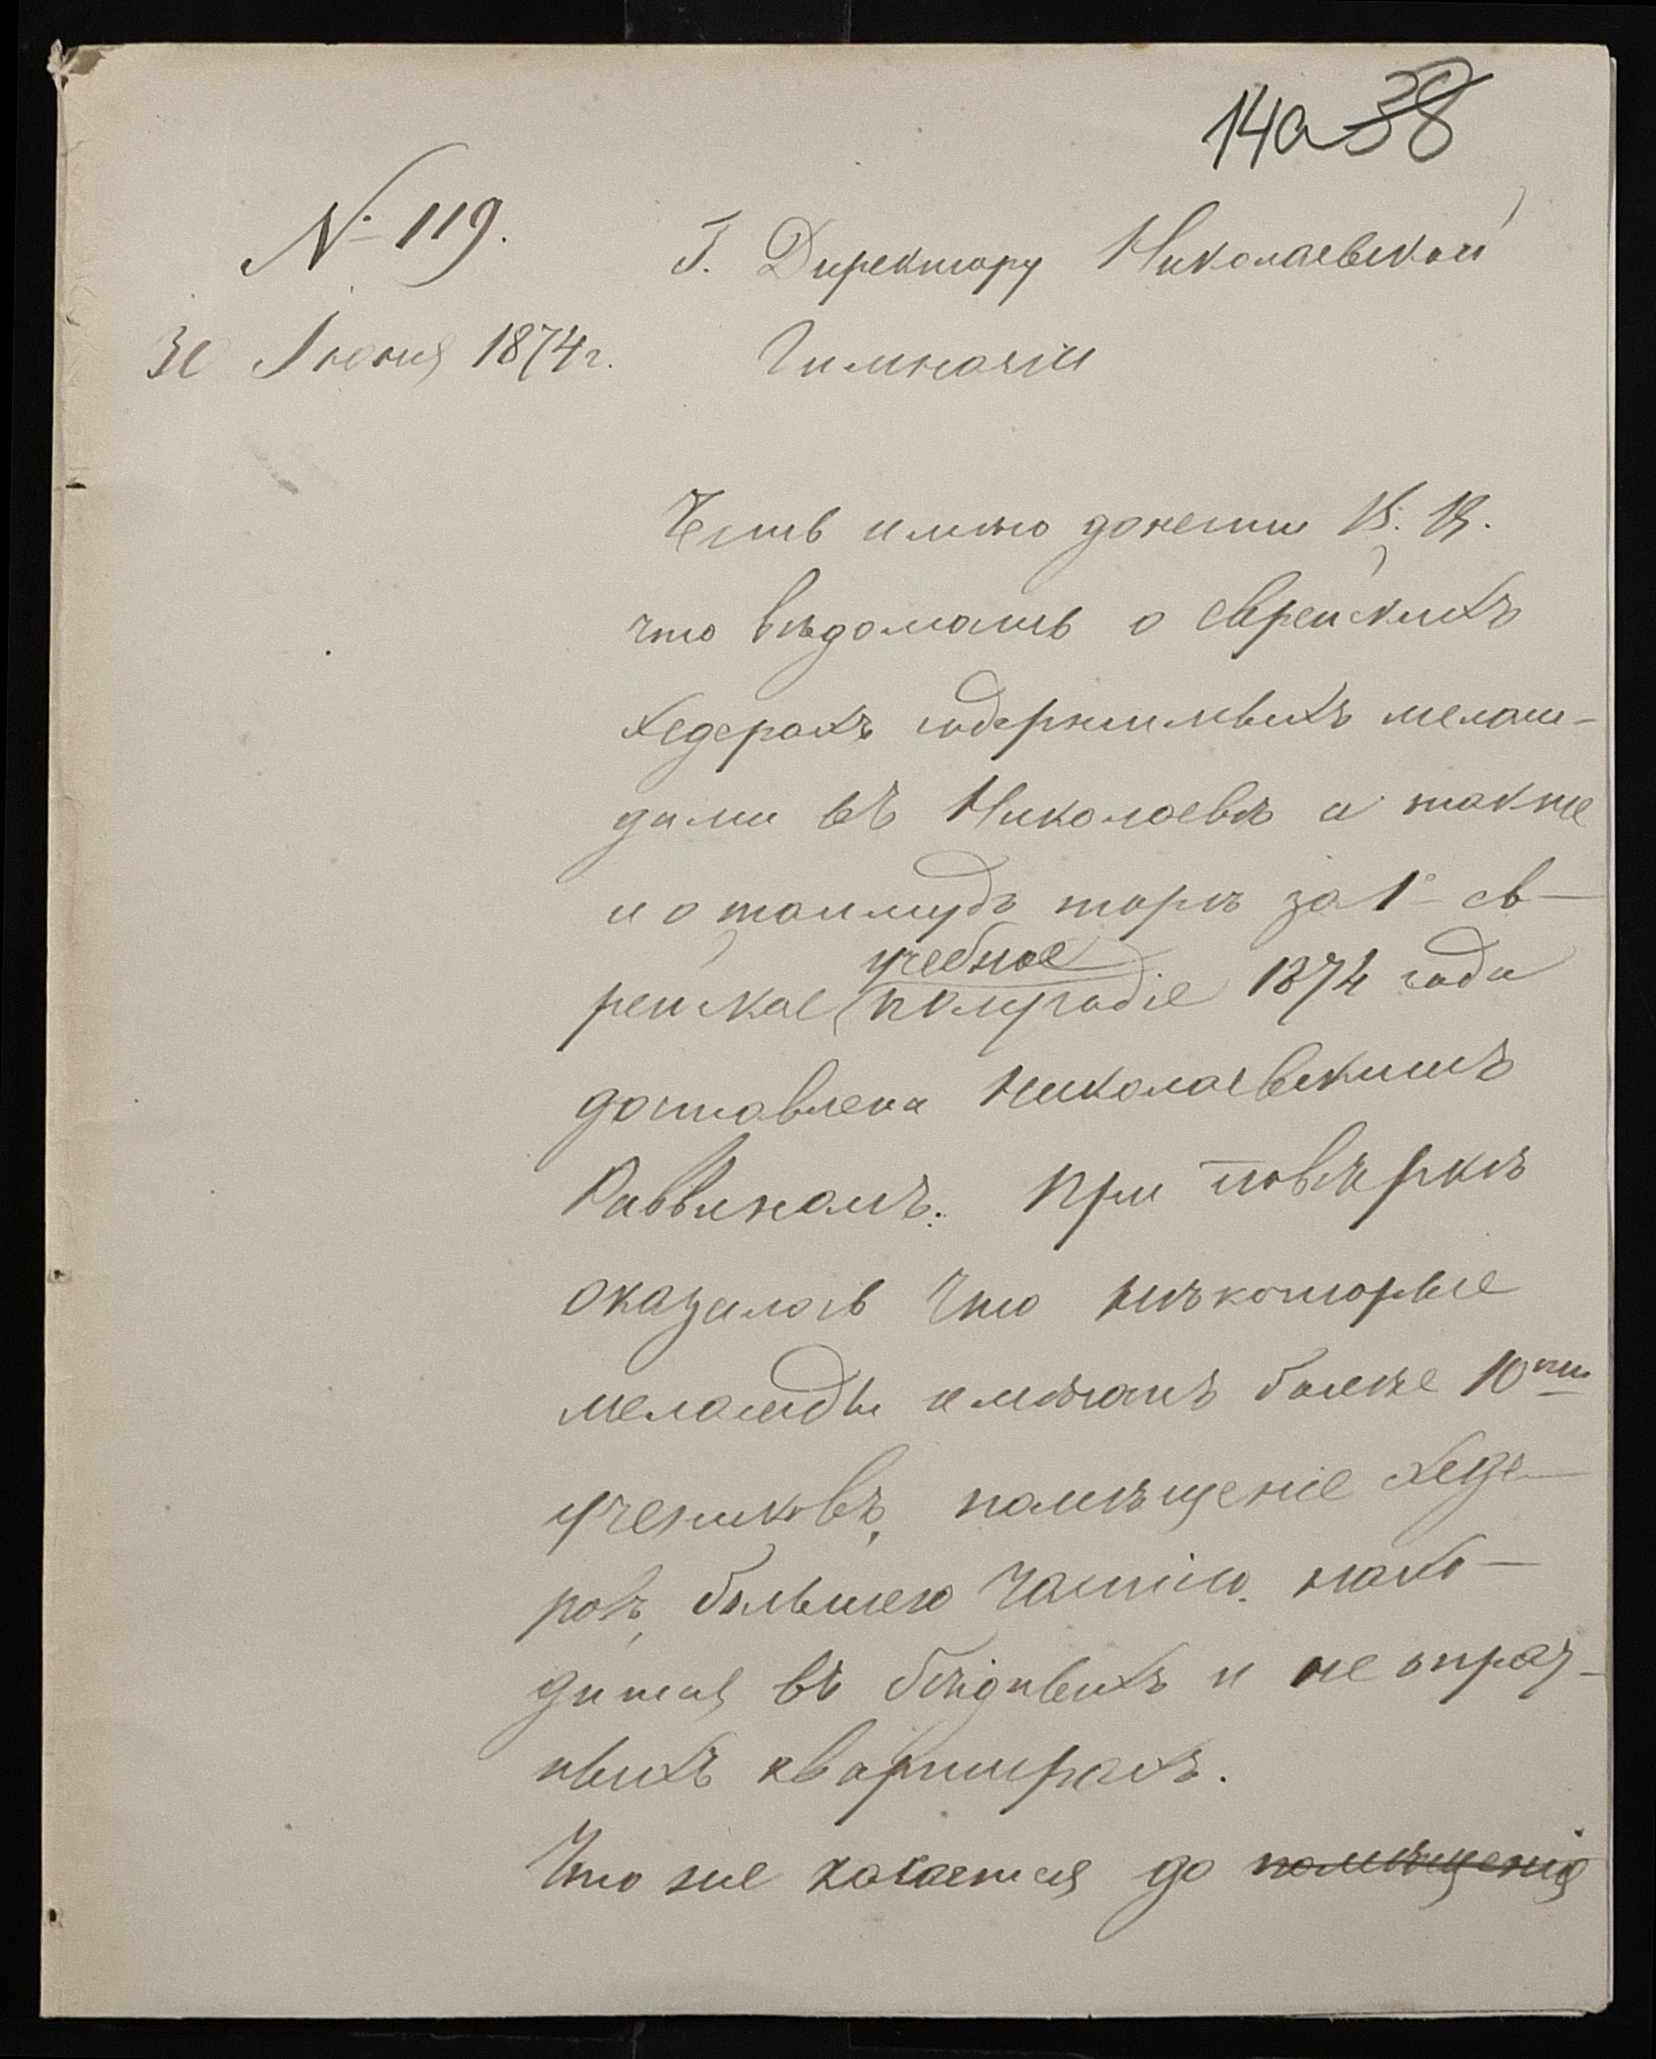 14а 38
№ 119.
30 Іюня 1874 г.
Г. Директору Николаевской
Гимназіи
Честь имѣю донести В. В.
что вѣдомость о еврейскихъ
хедерахъ содержимыхъ мелам-
дами въ Николаевѣ а также
и о талмудъ торѣ за 1е ев-
учебное
рейское полугодіе 1874 года
доставлена Николаевскимъ
Раввиномъ. При повѣркѣ
оказалось что нѣкоторые
меламды имѣютъ болѣе 10ти
учениковъ, помѣщеніе хеде-
ровъ, большею частію нахо-
дится въ бѣдныхъ и не опрят-
ныхъ квартирахъ.
Что же касается до помѣщенія